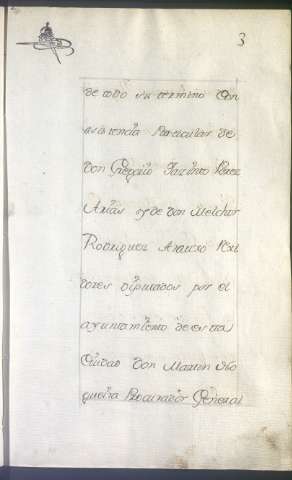 3
de todo su termino Con
asistencia Particular de
Don Gregorio Jazinto Perez
Arias y de Don Melchor
Rodriguez Araujo Rexi
dores Diputados por el
ayuntamiento de esta
Ciudad Don Martin No
gueira Procurador General